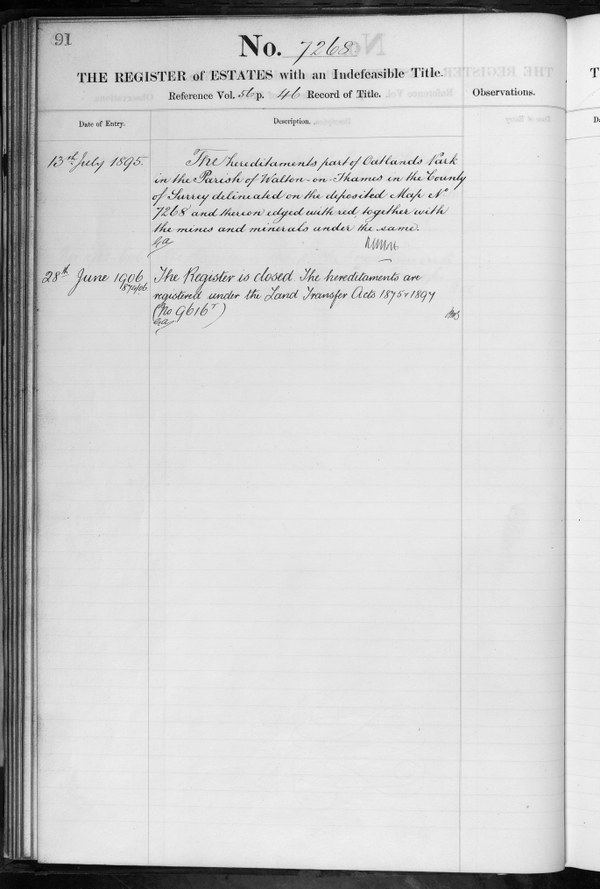 91
No. 7268
THE REGISTER of ESTATES with an Indefeasible Title.
Reference Vol. 56 p. 46 Record of Title.
Observations.
Date of Entry.
Description.
13th July 1895.
The hereditaments part of Oatlands Park
in the Parish of Walton-on-Thames in the County
of Surrey delineated on the deposited Map No
7268 and thereon edged with red together with
the mines and minerals under the same.
28th June 1906
The Register is closed. The hereditaments are
registered under the Land Transfer Acts 1875 & 1897
(No 9616)